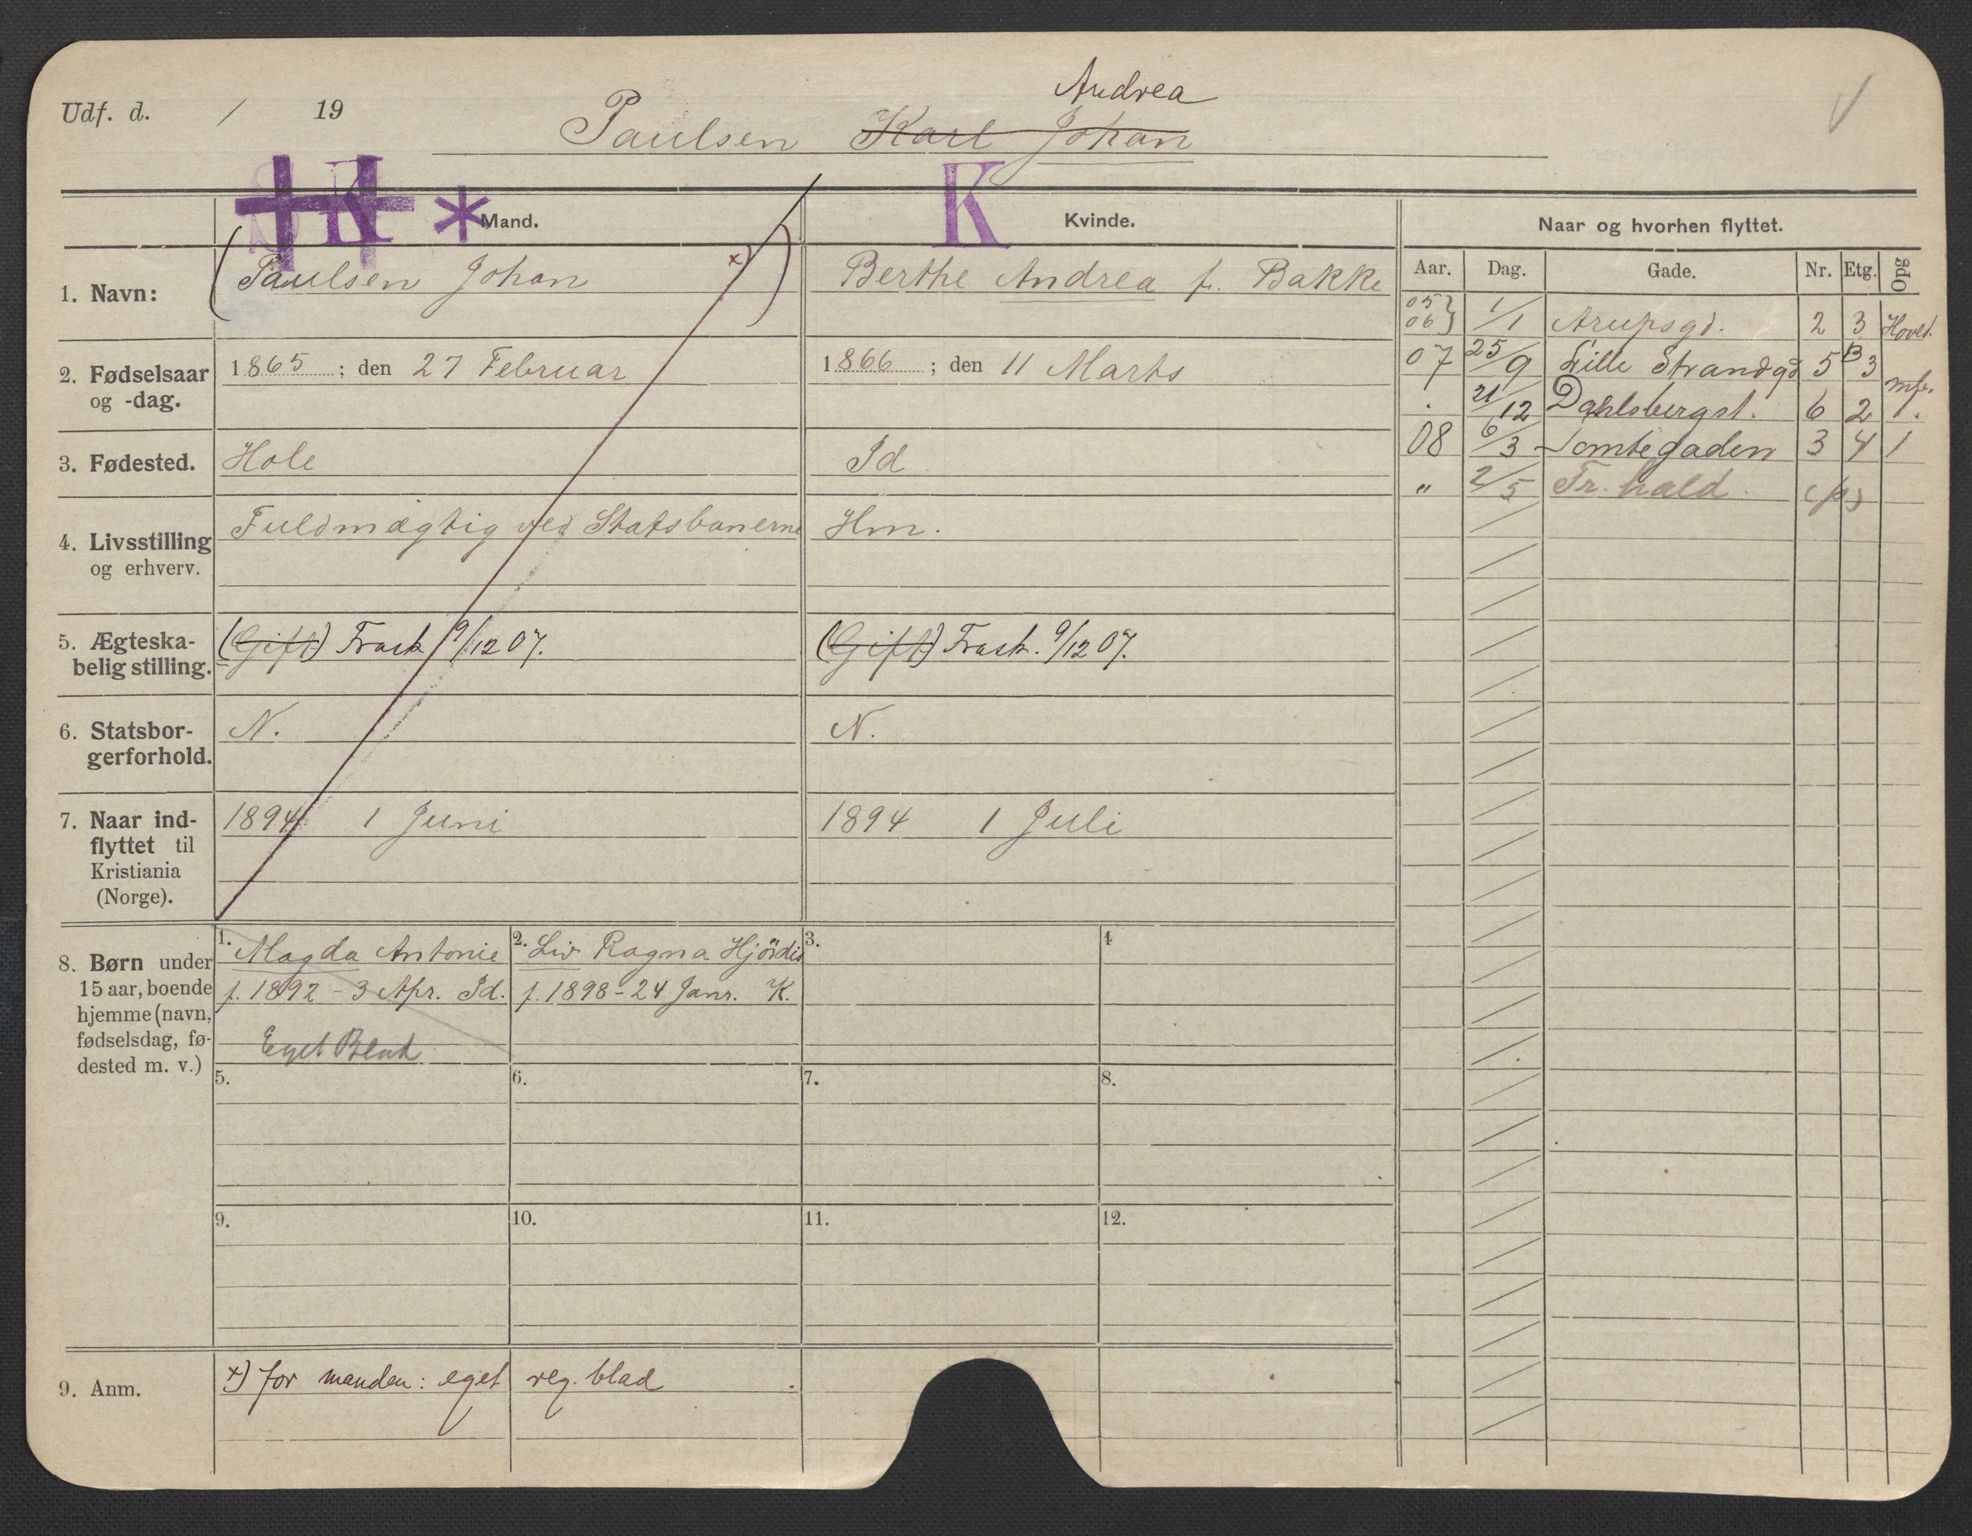 Udf. d. / 19
Andrea
Paulsen Karl Johan
K * Mand. K Kvinde. Naar og hvorhen flyttet.
1. Navn: (Paulsen Johan x)) Berthe Andrea f. Bakke
Aar. Dag. Gade. Nr. Etg. Opg
05 06} 1/1 Arupsgd. 2 3 Hovet.
07 25/9 Lille Strandgd 5 B 3
. 21/12 Dahlsbergst. 6 2 1.
08 6/3 Tomtegaden 3 4 1
„ 2/5 Fr. hald.
2. Fødselsaar og -dag. 1865 ; den 27 Februar 1866 ; den 11 Marts
3. Fødested. Hole Id
4. Livsstilling og erhverv. Fuldmægtig ved Statsbanerne Hm.
5. Ægteska-
belig stilling. (Gift) Frask. 9/12 07. (Gift) Frask. 9/12 07.
6. Statsbor-
gerforhold. N. N.
7. Naar ind-
flyttet til
Kristiania
(Norge). 1894 1 Juni 1894 1 Juli
8. Børn under
15 aar, boende
hjemme (navn,
fødselsdag, fø-
dested m. v.)
1. Magda Antonie
f. 1892 - 3 Apr. Id.
Eget Blad
2. Liv Ragna Hjördis
f. 1898 - 24 Janr. K.
3. 4
5. 6. 7. 8.
9. 10. 11. 12.
9. Anm. x) for manden: eget reg. blad